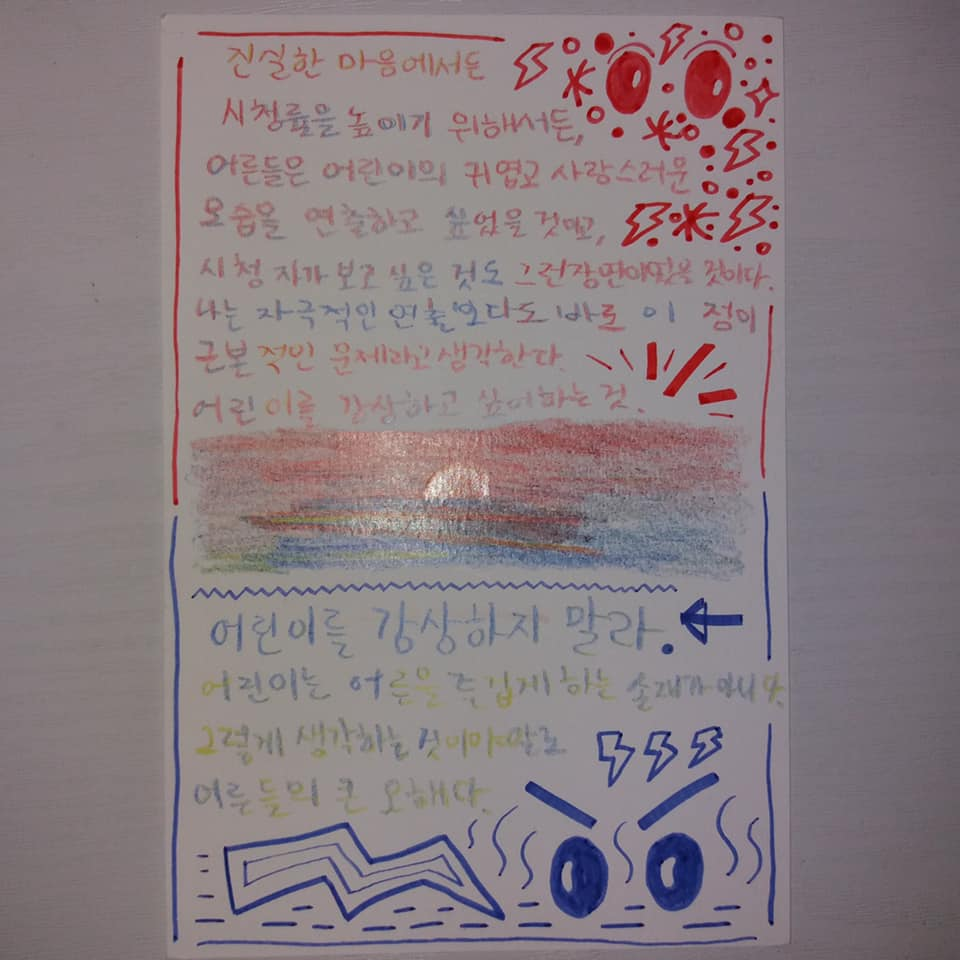 진실한 마음에서든
시청률을 높이기 위해서든,
어른들은 어린이의 귀엽고 사랑스러운
모습을 연출하고 싶었을 것이고,
시청자가 보고 싶은 것도 그런 장면이었을 것이다.
나는 자극적인 연출보다도 바로 이 점이
근본적인 문제라고 생각한다.
어린이를 감상하고 싶어하는 것.
어린이를 감상하지 말라.
어린이는 어른을 즐겁게 하는 존재가 아니다.
그렇게 생각하는 것이야말로
어른들의 큰 오해다.